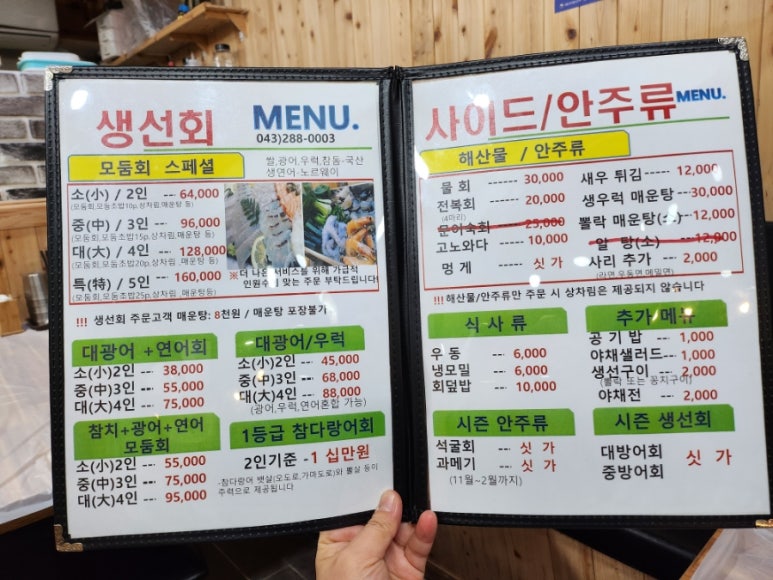 생선회 MENU.
043)288-0003
모둠회 스페셜
쌀,광어,우럭,참돔-국산
생연어-노르웨이
소(小) / 2인 --- 64,000
(모둠회,모둠초밥10p,상차림,매운탕 등)
중(中) / 3인 --- 96,000
(모둠회,모둠초밥15p,상차림,매운탕 등)
대(大) / 4인 --- 128,000
(모둠회,모둠초밥20p,상차림,매운탕 등)
특(特) / 5인 --- 160,000
(모둠회,모둠초밥25p,상차림,매운탕등)
※더 나은 서비스를 위해 가급적
인원수에 맞는 주문 부탁드립니다!
!!! 생선회 주문고객 매운탕: 8천원 / 매운탕 포장불가
대광어 +연어회
소(小)2인 --- 38,000
중(中)3인 --- 55,000
대(大)4인 --- 75,000
대광어/우럭
소(小)2인 --- 45,000
중(中)3인 --- 68,000
대(大)4인 --- 88,000
(광어,우럭,연어혼합 가능)
참치+광어+연어
모둠회
소(小)2인 --- 55,000
중(中)3인 --- 75,000
대(大)4인 --- 95,000
1등급 참다랑어회
2인기준 -1 십만원
-참다랑어 뱃살(오도로,가마도로)와 뽈살 등이
주력으로 제공됩니다
사이드/안주류 MENU.
해산물 / 안주류
물 회 ------ 30,000
전복회 ----- 20,000
(4마리)
문어숙회 ---- 25,000
고노와다 ----- 10,000
멍 게 ----- 싯 가
새우 튀김----- 12,000
생우럭 매운탕 ---30,000
뽈락 매운탕(소)--12,000
알 탕(소) ---12,000
사리 추가 ---- 2,000
(라면,우동면,메밀면)
!!! 해산물/안주류만 주문 시 상차림은 제공되지 않습니다
식 사 류
우 동 --- 6,000
냉모밀 --- 6,000
회덮밥 --- 10,000
추가 메뉴
공 기 밥 --- 1,000
야채샐러드--- 1,000
생선구이 --- 2,000
(뽈락 또는 꽁치구이)
야채전 --- 2,000
시즌 안주류
석굴회 --- 싯 가
과메기 --- 싯 가
(11월~2월까지)
시즌 생선회
대방어회
중방어회
싯 가